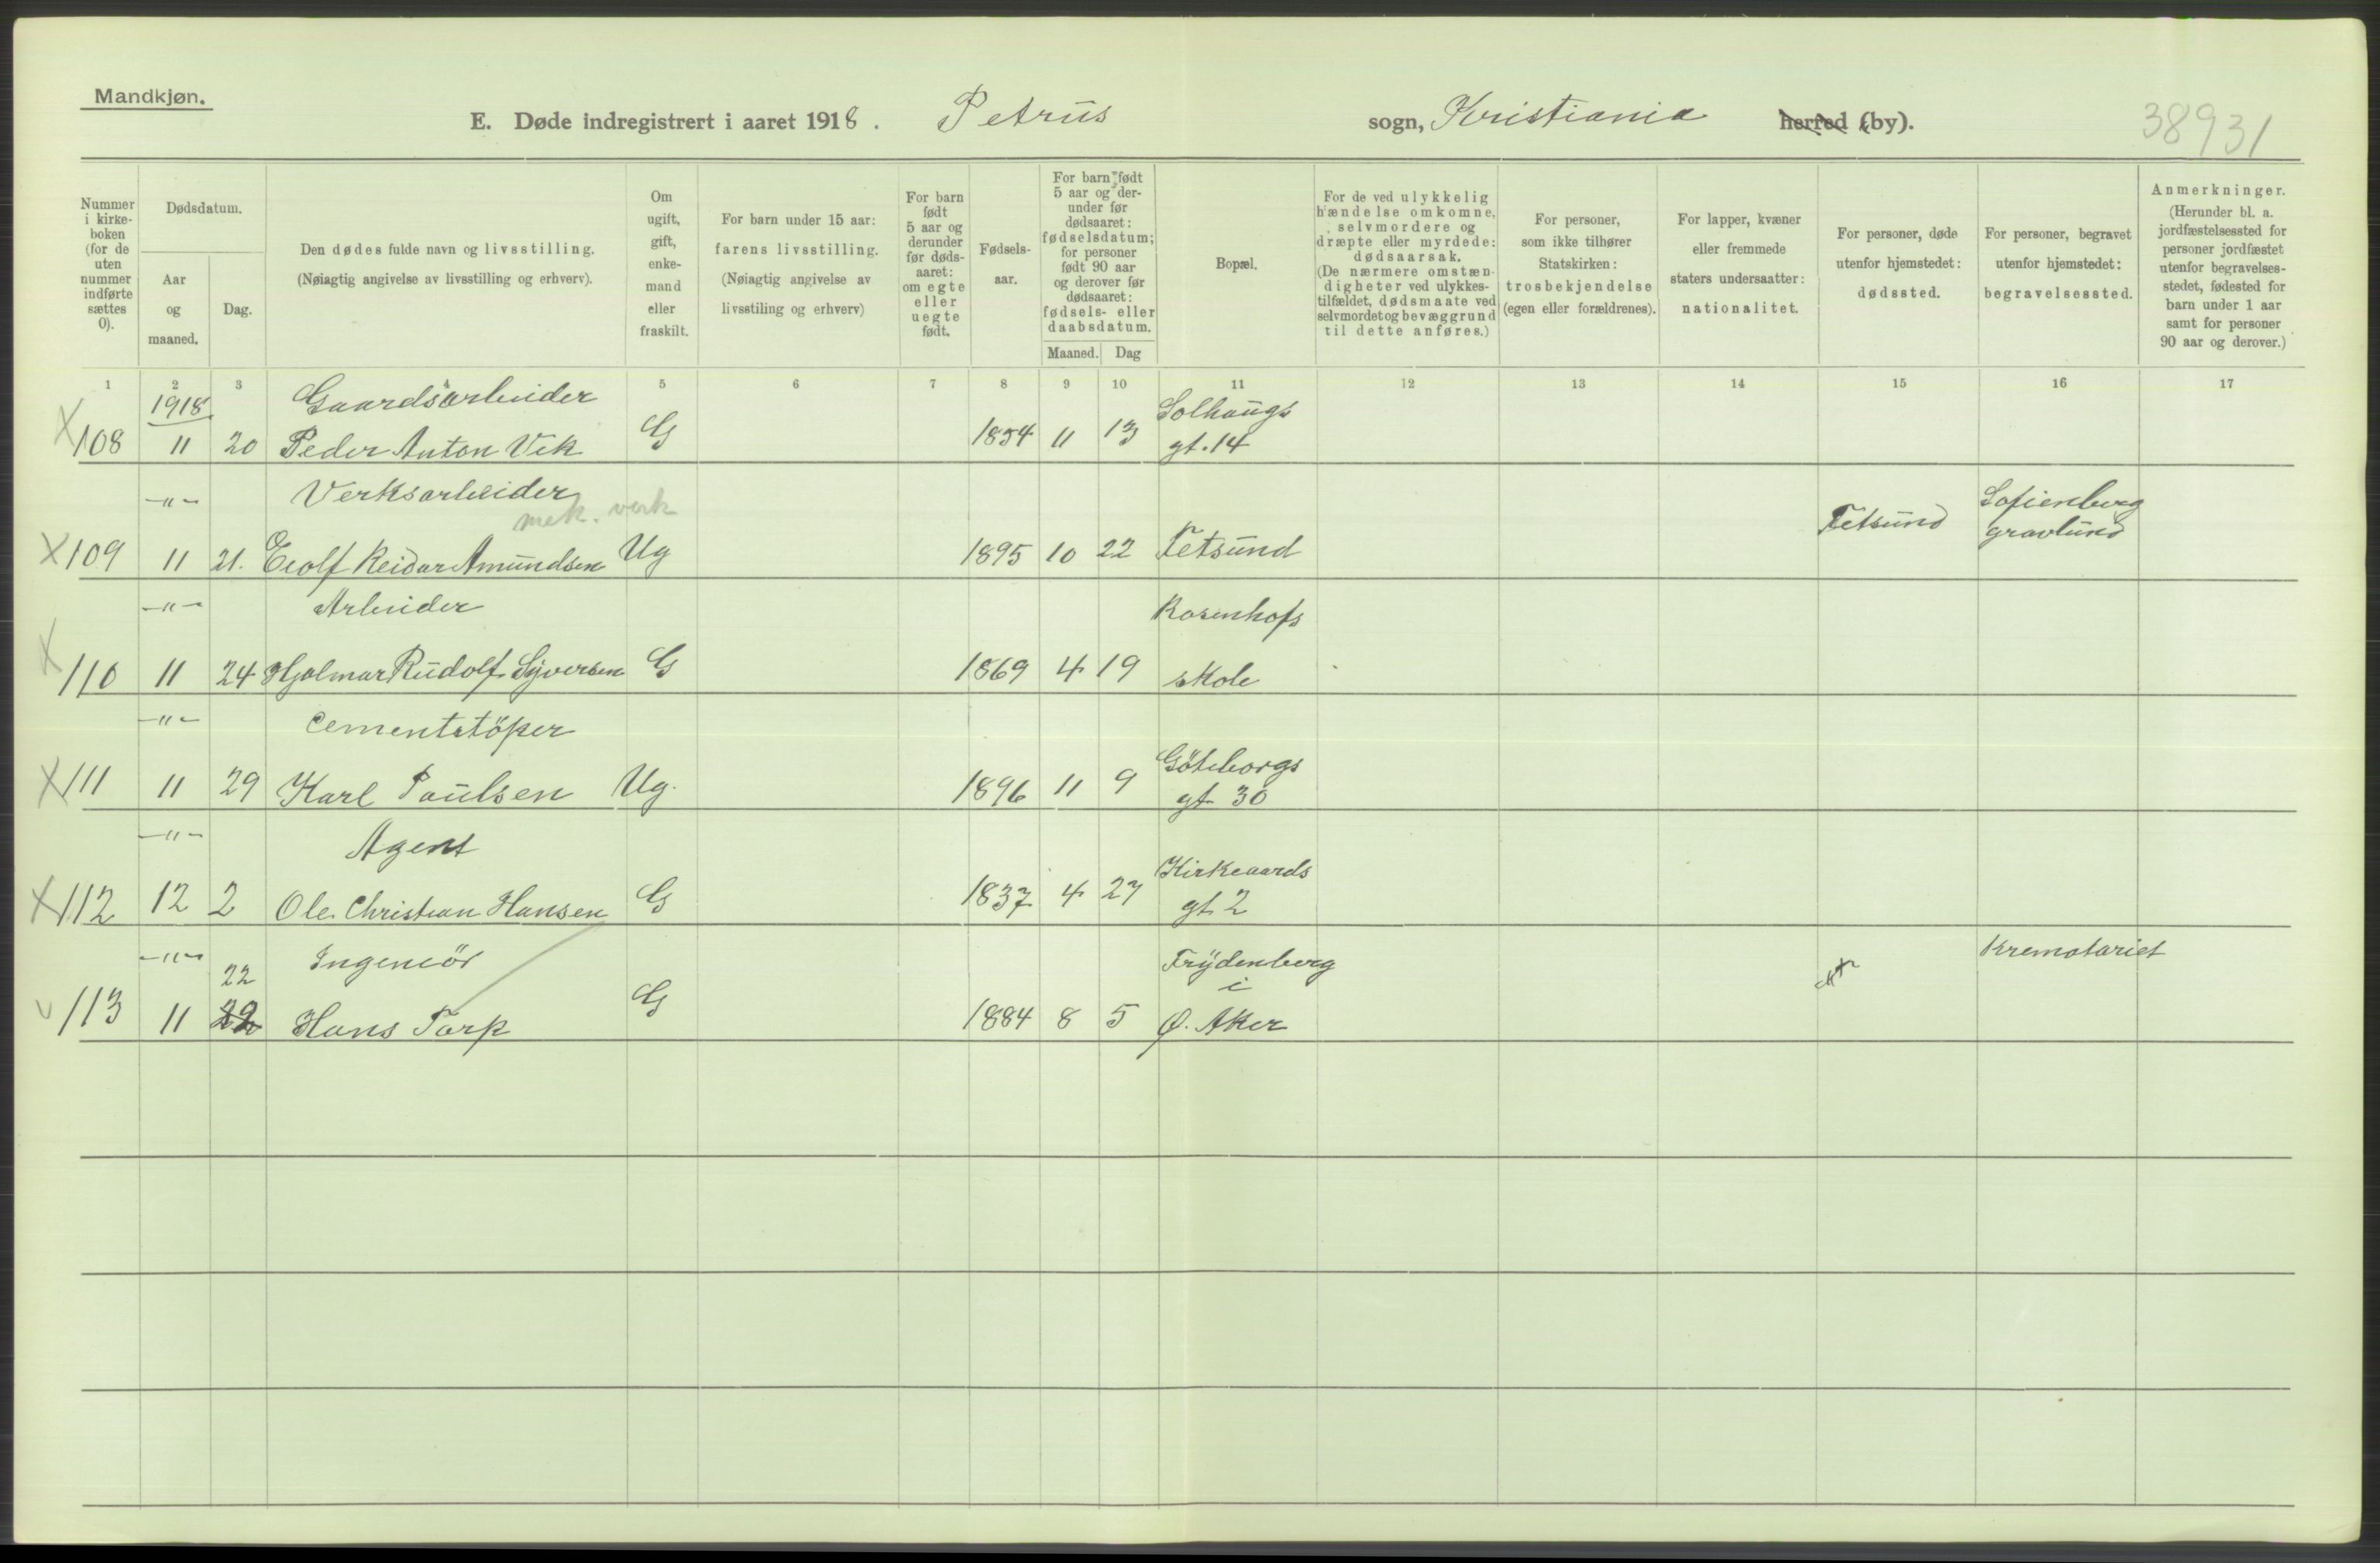 Mandkjøn.
E. Døde indregistrert i aaret 1918. Petrus sogn, Kristiania herred (by).
38931
Nummer i kirkeboken (for de uten nummer indførte sættes 0).
Dødsdatum.
Aar og maaned.
Dag.
Den dødes fulde navn og livsstilling.
(Nøiagtig angivelse av livsstilling og erhverv).
Om ugift, gift, enkemand eller fraskilt.
For barn under 15 aar:
farens livsstilling.
(Nøiagtig angivelse av
livsstiling og erhverv)
For barn født 5 aar og derunder før dødsaaret: om egte eller uegte født.
Fødselsaar.
For barn født 5 aar og derunder før dødsaaret: fødselsdatum; for personer født 90 aar og derover før dødsaaret: fødsels- eller daabsdatum.
Maaned. Dag
Bopæl.
For de ved ulykkelig hændelse omkomne, selvmordere og dræpte eller myrdede: dødsaarsak.
(De nærmere omstændigheter ved ulykkestilfældet, dødsmaate ved selvmordet og bevæggrund til dette anføres.)
For personer, som ikke tilhører Statskirken: trosbekjendelse (egen eller forældrenes).
For lapper, kvæner eller fremmede staters undersaatter: nationalitet.
For personer, døde utenfor hjemstedet: dødssted.
For personer, begravet utenfor hjemstedet: begravelsessted.
Anmerkninger.
(Herunder bl. a. jordfæstelsessted for personer jordfæstet utenfor begravelsesstedet, fødested for barn under 1 aar samt for personer 90 aar og derover.)
1 2 3 5 6 7 8 9 10 11 12 13 14 15 16 17
1918 Gaardsarbeider Solhaugs
X 108 11 20 Peder Anton Vik G 1854 11 13 gt. 14
-"- Verksarbeider mek. verk Fetsund Sofienberg gravlund
X 109 11 21. Eiolf Reidar Amundsen Ug 1895 10 22 Fetsund
-"- Arbeider Rosenhofs
X 110 11 24 Hjalmar Rudolf Syversen G 1869 4 19 skole
-"- Cementstöper Göteborgs
X 111 11 29 Karl Paulsen Ug. 1896 11 9 gt. 30
-"- Agent Kirkeaards
X 112 12 2 Ole Christian Hansen G 1837 4 27 gt. 2
-"- 22 Ingeniör Frydenberg i Krematoriet
v 113 11 22 Hans Torp G 1884 8 5 Ø. Aker